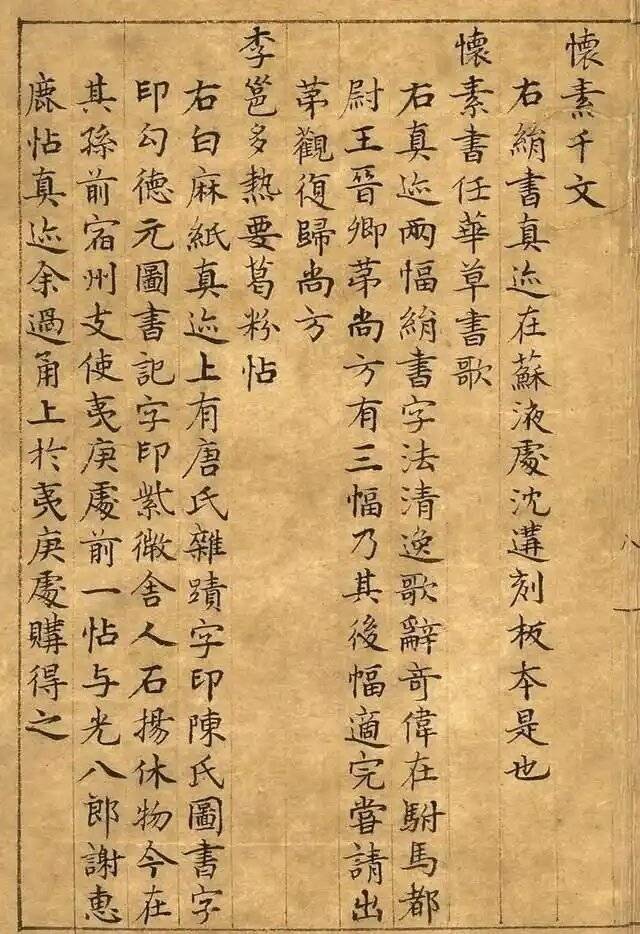 懷素千文
右絹書真迹在蘇液處沈遘刻板本是也
懷素書任華草書歌
右真迹兩幅絹書字法清逸歌辭奇偉在駙馬都
尉王晉卿苐尚方有三幅乃其後幅適完嘗請出
苐觀復歸尚方
李邕多熱要葛粉帖
右白麻紙真迹上有唐氏雜蹟字印陳氏圖書字
印勾德元圖書記字印紫微舍人石揚休物今在
其孫前宿州支使夷庚處前一帖与光八郎謝惠
鹿帖真迹余過甬上於夷庚處購得之
八